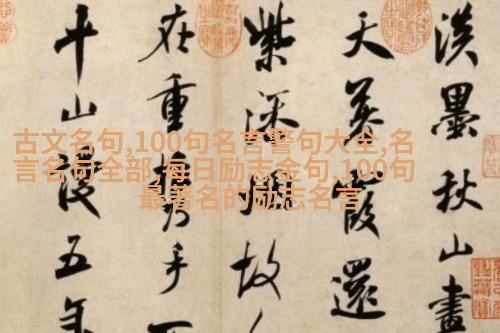 古文名句,100句名言警句大全,名
言名句全部,每日励志金句,100句
最著名的励志名言
淡墨秋山畫
天暮霞還
紫添煙故
在重攜手不
平山謾五年